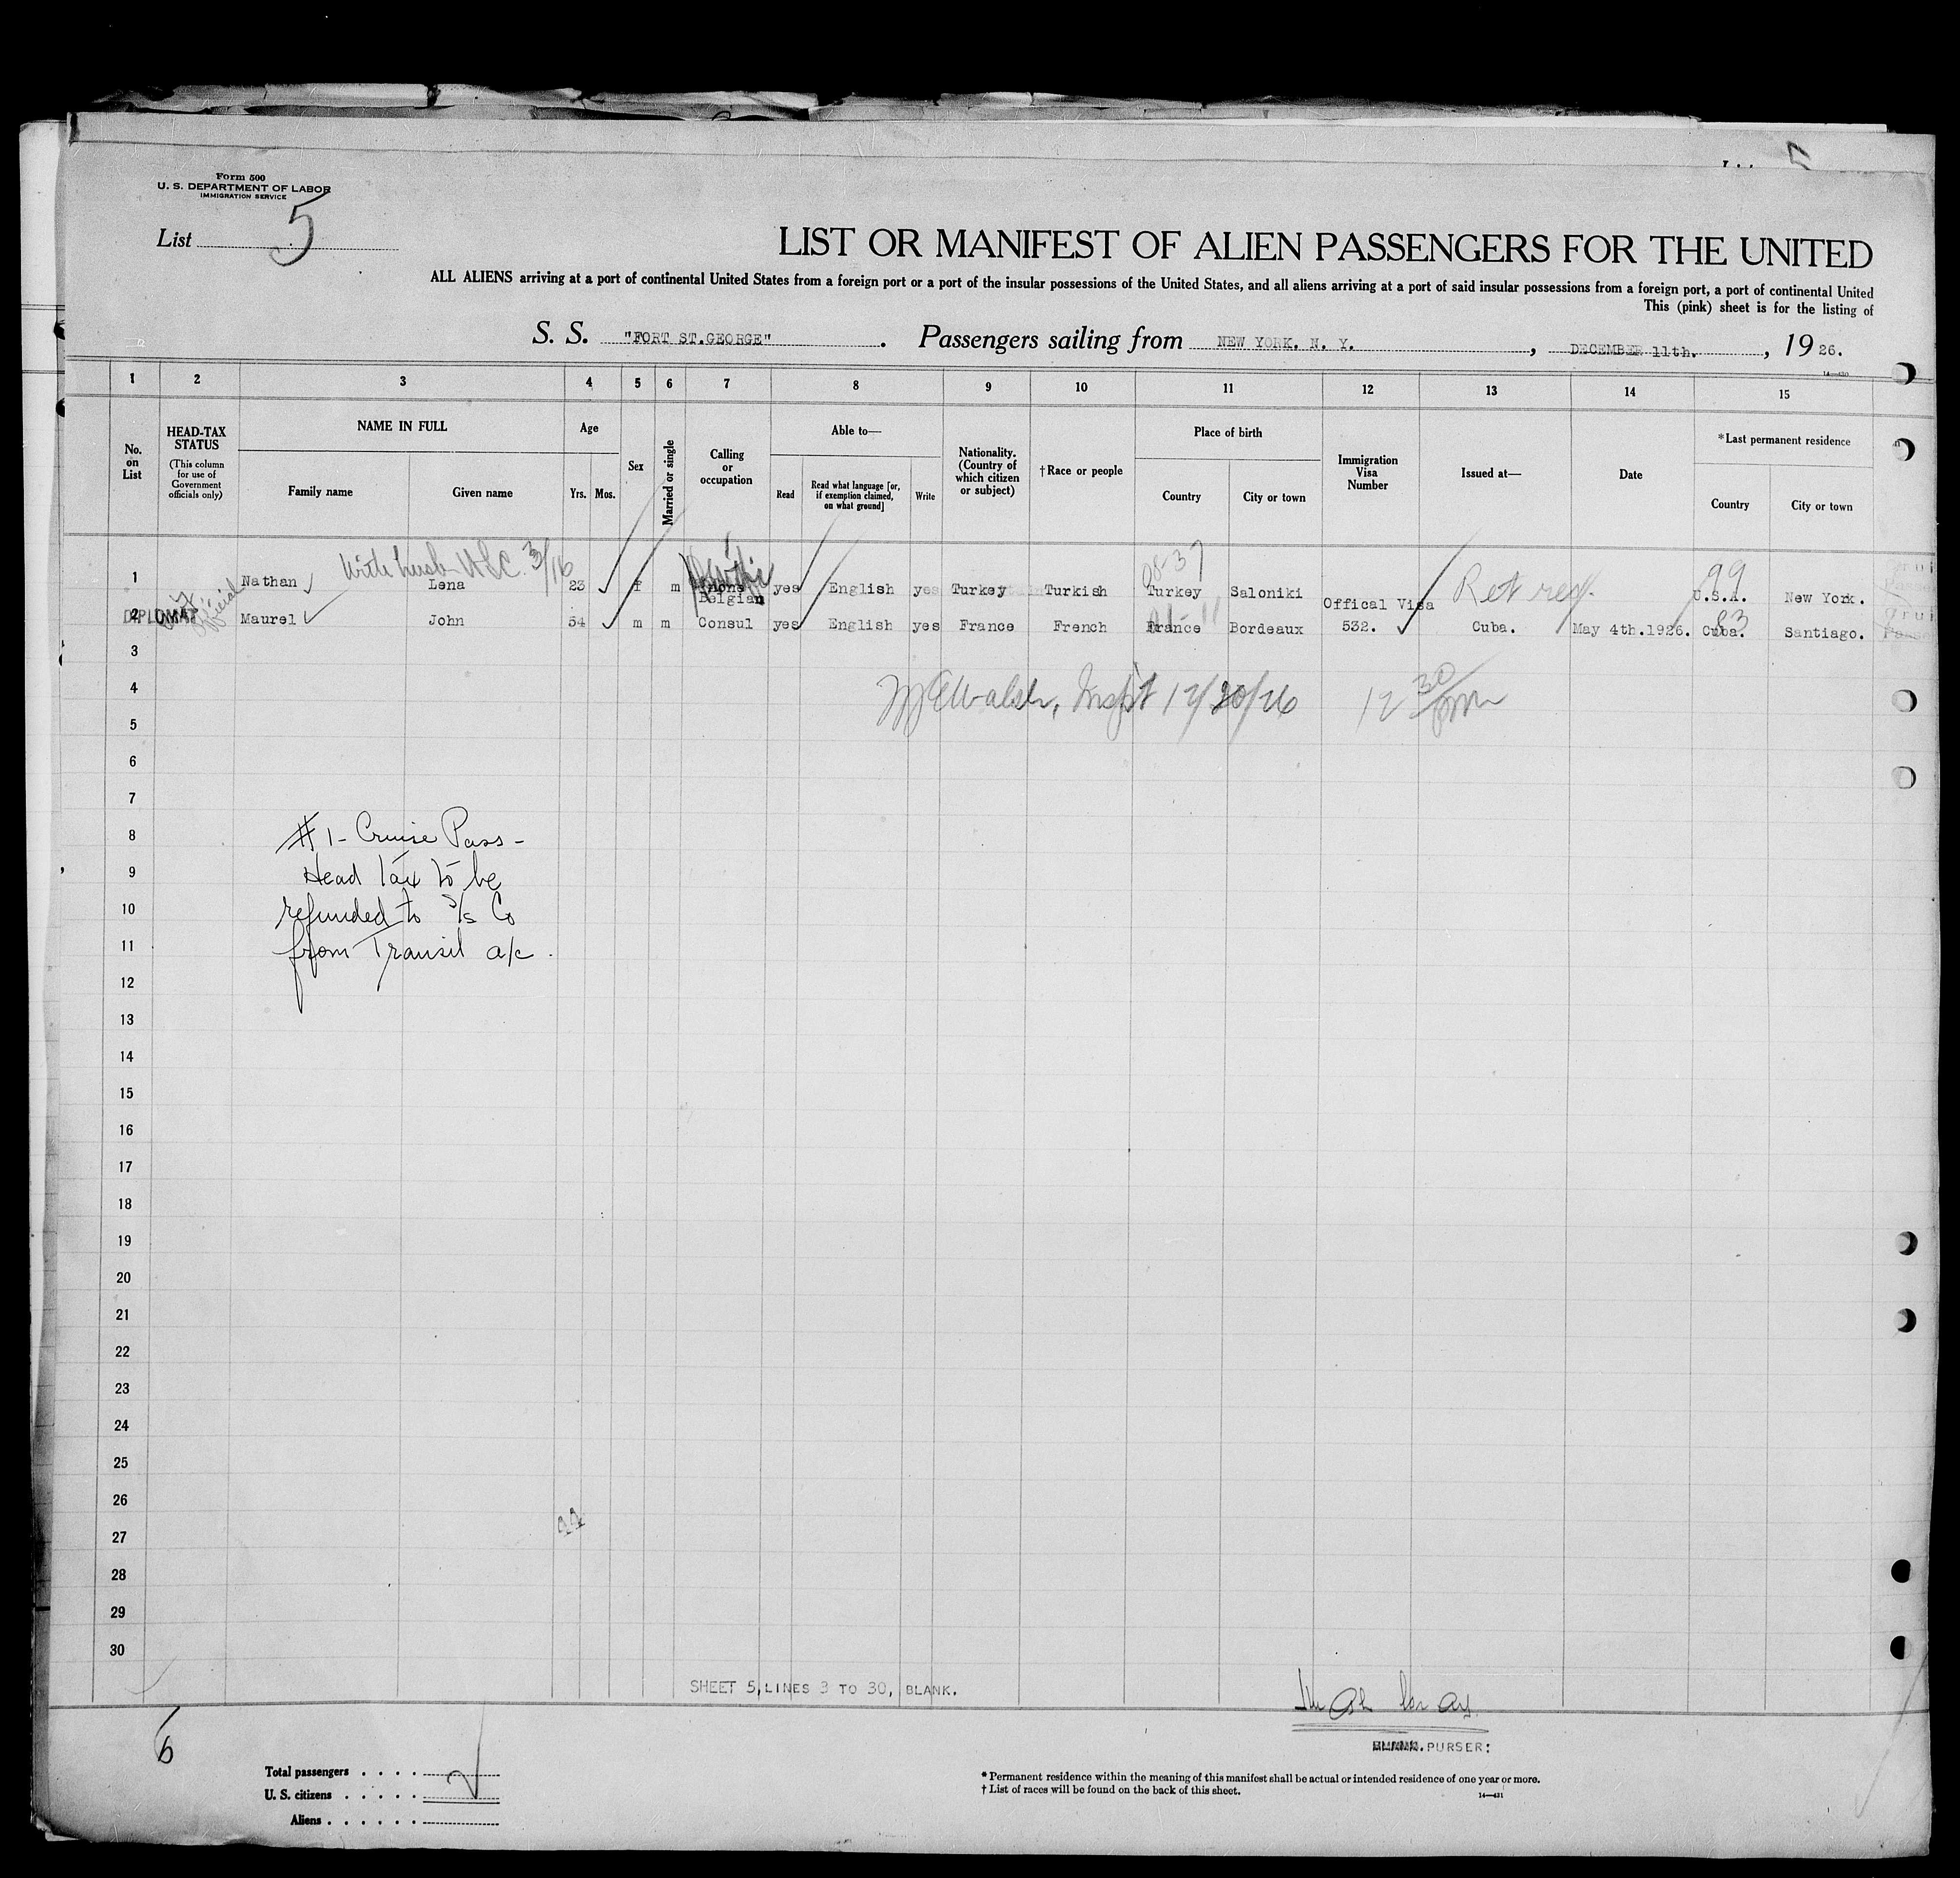 Form 500
U. S. DEPARTMENT OF LABOR
IMMIGRATION SERVICE
List 5
LIST OR MANIFEST OF ALIEN PASSENGERS FOR THE UNITED
ALL ALIENS arriving at a port of continental United States from a foreign port or a port of the insular possessions of the United States, and all aliens arriving at a port of said insular possessions from a foreign port, a port of continental United
This (pink) sheet is for the listing of
S. S. "FORT ST.GEORGE". Passengers sailing from NEW YORK. N. Y., DECEMBER 11th., 1926.
14—430
1 2 3 4 5 6 7 8 9 10 11 12 13 14 15
No. on List
HEAD-TAX STATUS
(This column for use of Government officials only)
NAME IN FULL
Family name
Given name
Age
Yrs.
Mos.
Sex
Married or single
Calling or occupation
Able to—
Read
Read what language [or, if exemption claimed, on what ground]
Write
Nationality. (Country of which citizen or subject)
†Race or people
Place of birth
Country
City or town
Immigration Visa Number
Issued at—
Date
*Last permanent residence
Country
City or town
With husb USC 3/16
08-37
99
1 Nathan Lena 23 f m none yes English yes Turkey Turkish Turkey Saloniki Ret U.S.A. New York.
Belgian Offical Visa
2 DIPLOMAT Maurel John 54 m m Consul yes English yes France French France Bordeaux 532. Cuba. May 4th.1926. Cuba. Santiago.
83
3
4
Walsh, Inspt 12/20/26 12 30/pm
5
6
7
8 #1 - Cruise Pass -
9 Head Tax to be
10 refunded to S/S Co
11 from Transit a/c.
12
13
14
15
16
17
18
19
20
21
22
23
24
25
26
27
28
29
30
SHEET 5, LINES 3 TO 30, BLANK.
PURSER:
6
Total passengers
U. S. citizens
Aliens
* Permanent residence within the meaning of this manifest shall be actual or intended residence of one year or more.
† List of races will be found on the back of this sheet.
14—431